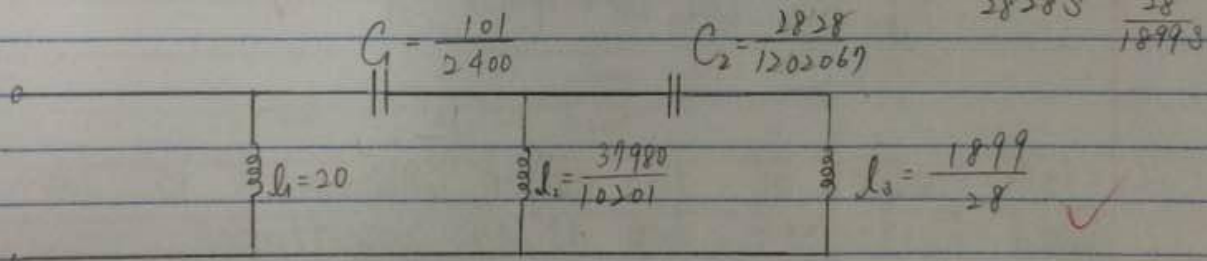 28285 28/1899s
C₁ = 101/2400 C₂ = 2828/1202067
l₁ = 20 l₂ = 37980/10201 l₃ = 1899/28